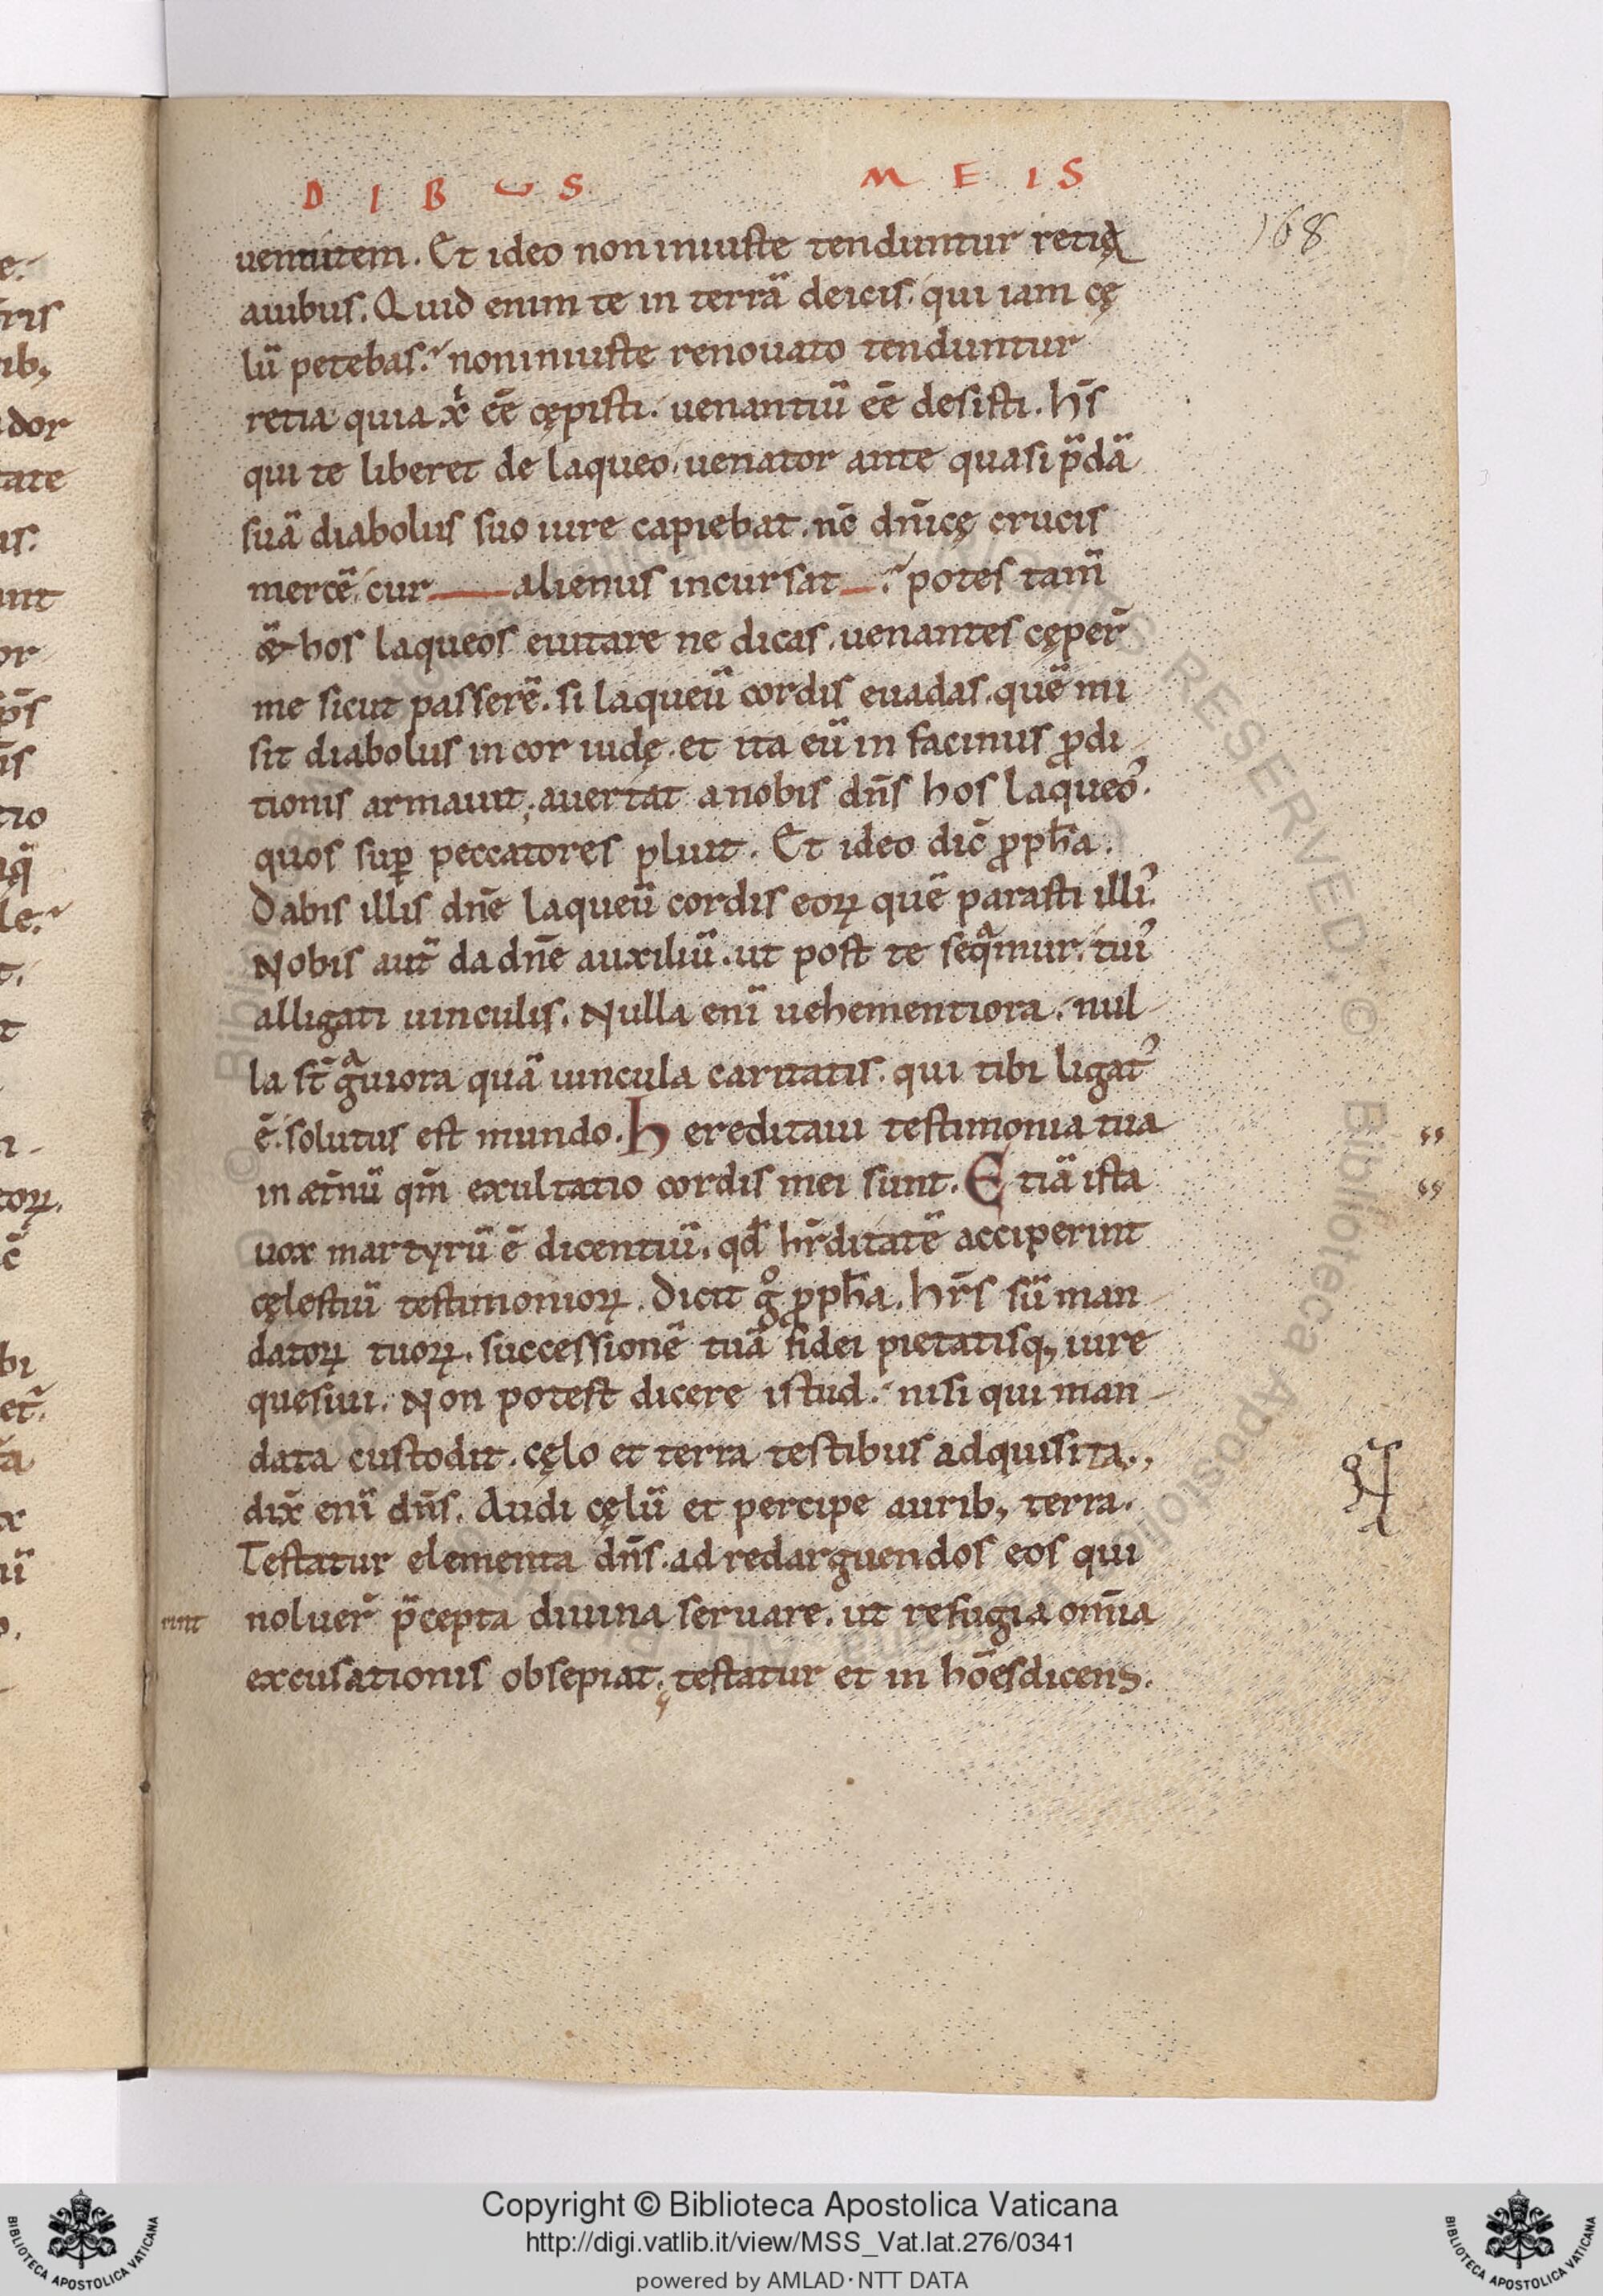 D I B U S M E I S
168
uentutem. Et ideo non iniuste tenduntur retię
auibus. Quid enim te in terrā deicis, qui iam cę
lū petebas? non iniuste renouato tenduntur
retia quia x̓ eē cępisti. uenantiū eē desisti. hr̄s
qui te liberet de laqueo, uenator ante quasi p̄dā
suā diabolus suo iure capiebat. nc̄ dn̄icę crucis
mercē, cur alienus incursat ? potes tam̄
& hos laqueos euitare ne dicas, uenantes cęper̄
me sicut passerē. si laqueū cordis euadas, quē mi
sit diabolus in cor iudę. et ita eū in facinus ꝓdi
tionis armauit; auertat a nobis dn̄s hos laqueoʾ.
quos suꝑ peccatores pluit. Et ideo dic̄ ꝓph̄a.
Dabis illis dn̄e laqueū cordis eoꝝ quē parasti illiʾ.
Nobis aut̄ da dn̄e auxiliū. ut post te seqͣmur. tuiʾ
alligati uinculis. Nulla eni̅ uehementiora. nul-
la st̄ gͣuiora quā uincula caritatis. qui tibi ligatʾ
ē. solutus est mundo. Hereditaui testimonia tua
in æt̄nū qm̄ exultatio cordis mei sunt. Etiā ista
uox martyrū ē dicentiū. qd̄ hr̄ditatē acciperint
cęlestiū testimonioꝝ. Dicit gͦ ꝓph̄a. hr̄s sū man-
datoꝝ tuoꝝ. successionē tuā fidei pietatisq, iure
quesiui. Non potest dicere istud. nisi qui man-
data custodit. cęlo et terra testibus adquisita.,
dix̄ eni̅ dn̄s. Audi cęlū et percipe aurib, terra.
Testatur elementa dn̄s. ad redarguendos eos qui
rint
noluer̄ p̄cepta diuina seruare. ut refugia om̄ia
excusationis obsepiat; testatur et in hōes dicens.
Copyright © Biblioteca Apostolica Vaticana
http://digi.vatlib.it/view/MSS_Vat.lat.276/0341
powered by AMLAD·NTT DATA
BIBLIOTECA APOSTOLICA VATICANA
BIBLIOTECA APOSTOLICA VATICANA